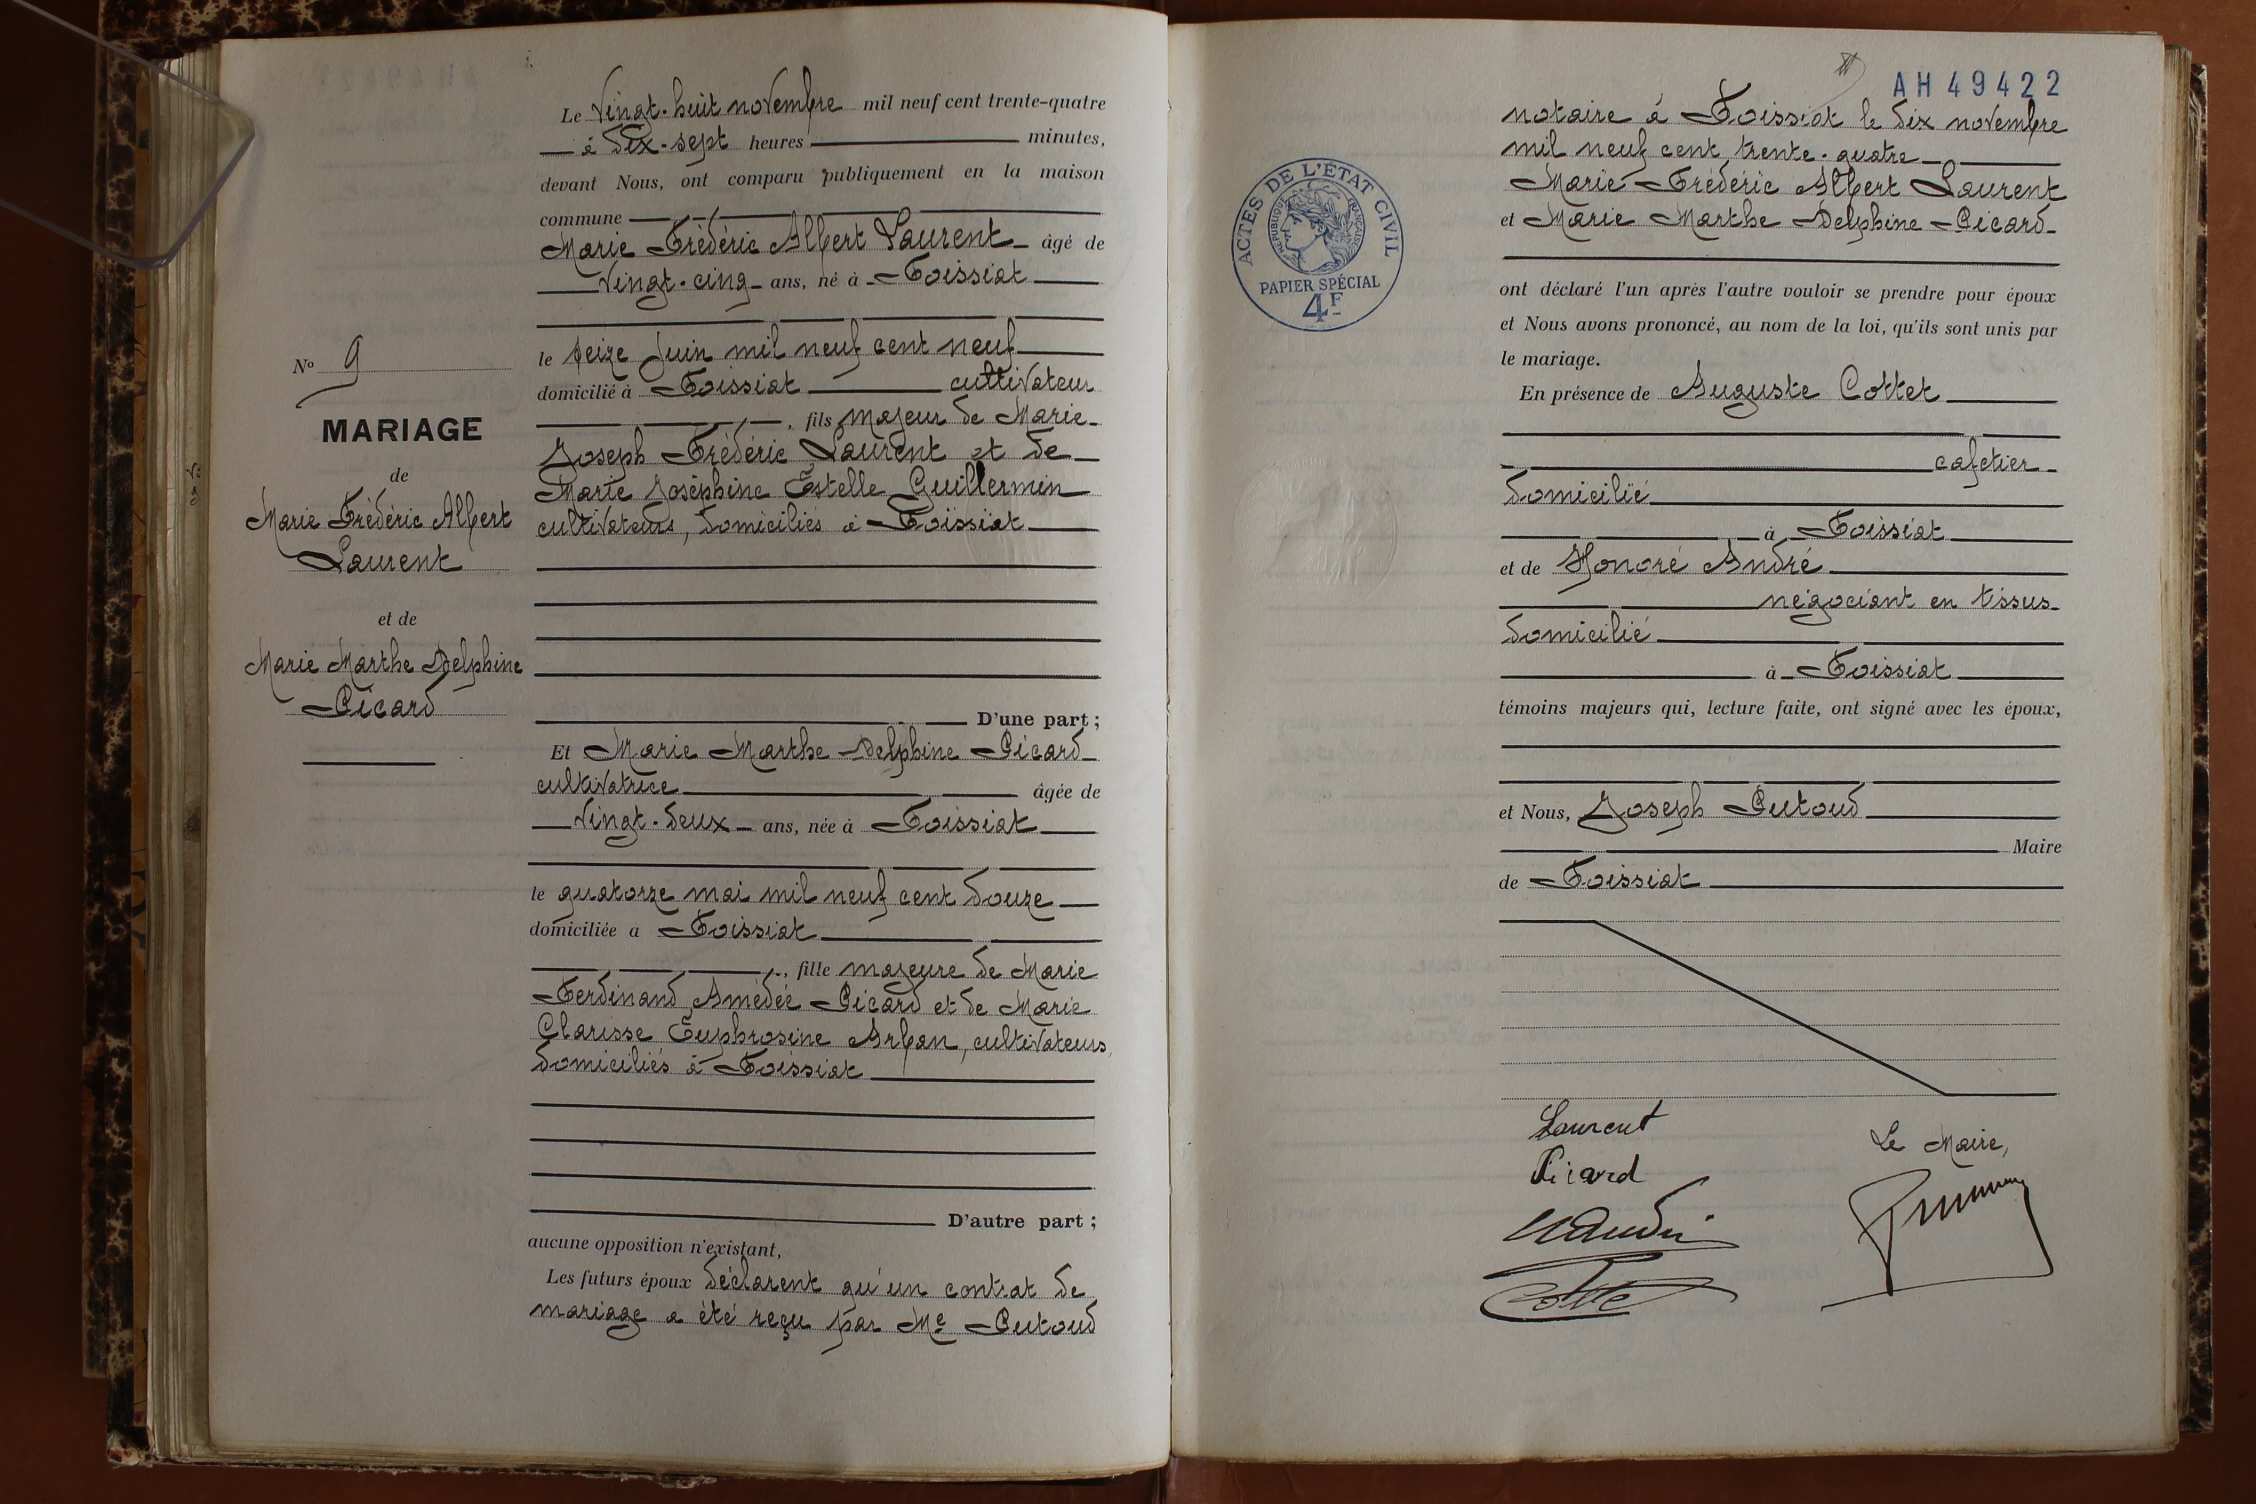 Nº 9
MARIAGE
de
Marie Frédéric Albert
Laurent
et de
Marie Marthe Delphine
Picard
Le Vingt-huit novembre mil neuf cent trente-quatre
à Dix-sept heures minutes,
devant Nous, ont comparu publiquement en la maison
commune
Marie Frédéric Albert Laurent âgé de
Vingt-cinq ans, né à Foissiat
le seize Juin mil neuf cent neuf
domicilié à Foissiat cultivateur
, fils majeur de Marie
Joseph Frédéric Laurent et de
Marie Joséphine Estelle Guillermin
cultivateurs, domiciliés à Foissiat
D'une part ;
Et Marie Marthe Delphine Picard
cultivatrice âgée de
Vingt-deux ans, née à Foissiat
le quatorze mai mil neuf cent douze
domiciliée à Foissiat
, fille majeure de Marie
Ferdinand Amédée Picard et de Marie
Clarisse Euphrosine Arban, cultivateurs,
domiciliés à Foissiat
D'autre part ;
aucune opposition n'existant,
Les futurs époux déclarent qu'un contrat de
mariage a été reçu par Me Putoud
AH 49422
notaire à Foissiat le dix novembre
mil neuf cent trente-quatre
Marie Frédéric Albert Laurent
et Marie Marthe Delphine Picard
ACTES DE L'ÉTAT CIVIL
RÉPUBLIQUE FRANÇAISE
PAPIER SPÉCIAL
4F
ont déclaré l'un après l'autre vouloir se prendre pour époux
et Nous avons prononcé, au nom de la loi, qu'ils sont unis par
le mariage.
En présence de Auguste Cottet
cafetier
domicilié
à Foissiat
et de Honoré André
négociant en tissus
domicilié
à Foissiat
témoins majeurs qui, lecture faite, ont signé avec les époux,
et Nous, Joseph Putoud
Maire
de Foissiat
Laurent
Le Maire,
Picard